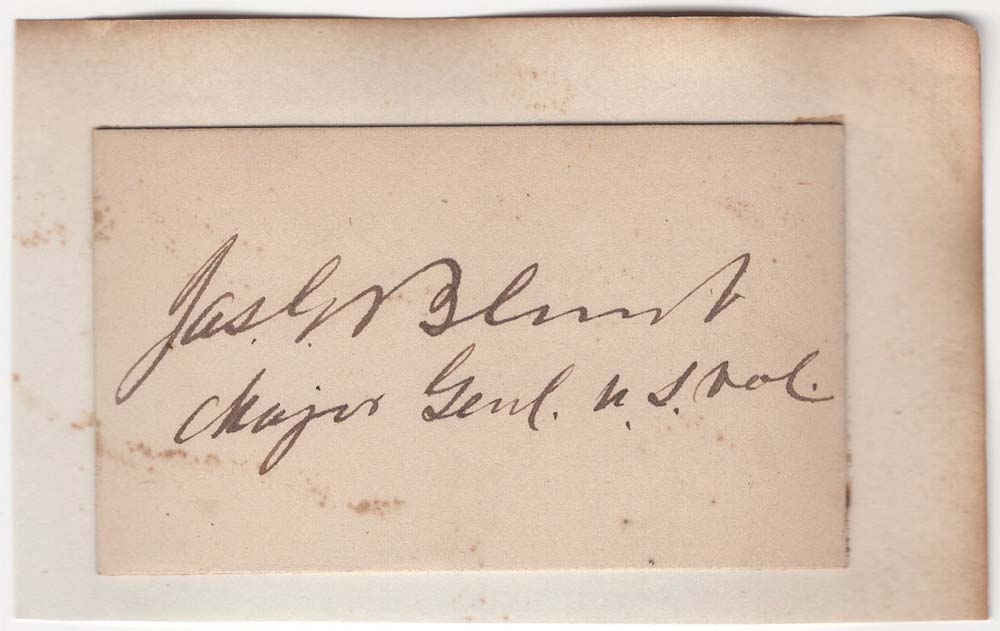 Jas. G. Blunt
Major Genl. U.S. Vol.